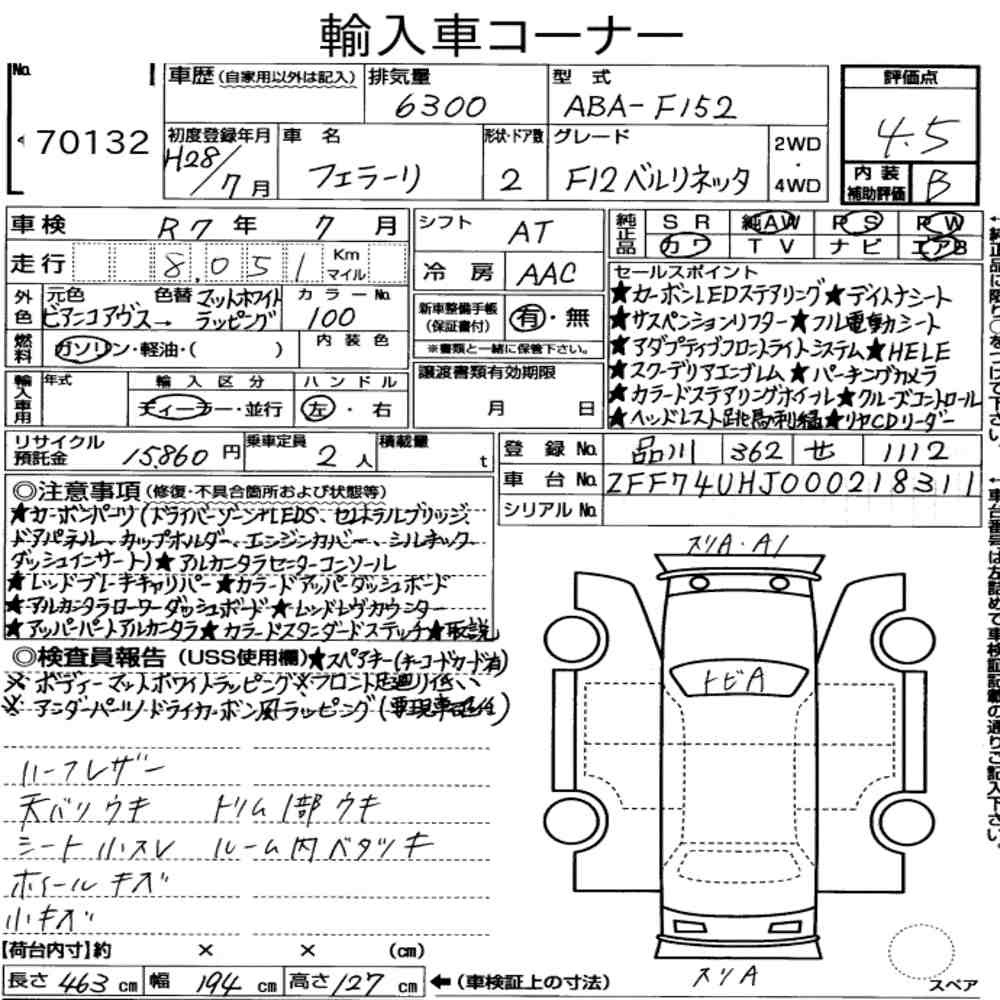 輸入車コーナー
No. 70132
車歴(自家用以外は記入) 排気量 6300 型式 ABA-F152 評価点 4.5
初度登録年月 H28/7月 車名 フェラーリ 形状・ドア数 2 グレード F12ベルリネッタ 2WD・4WD 内装補助評価 B
車検 R7年 7月 シフト AT 純正品 SR 純AW PS PW
カワ TV ナビ エアB
走行 8,051 Km マイル 冷房 AAC
セールスポイント
外色 元色 ビアンコアヴス→ 色替 マットホワイトラッピング カラーNo. 100 新車整備手帳(保証書付) 有・無
★カーボンLEDステアリング★デイトナシート
★サスペンションリフター★フル電動シート
燃料 ガソリン・軽油・( ) 内装色 ※書類と一緒に保管下さい。
★アダプティブフロントライトシステム★HELE
★スクーデリアエンブレム★パーキングカメラ
輸入車用 年式 輸入区分 ディーラー・並行 ハンドル 左・右 譲渡書類有効期限 月 日
★カラードステアリングホイール★クルーズコントロール
★ヘッドレスト跳馬刺繍★リヤCDリーダー
リサイクル預託金 15,860円 乗車定員 2人 積載量 t 登録No. 品川 362 せ 1112
車台No. ZFF74UHJ000218311
シリアルNo.
◎注意事項(修復・不具合箇所および状態等)
★カーボンパーツ(ドライバーゾーン+LEDS、セントラルブリッジ、
ドアパネル、カップホルダー、エンジンカバー、シルキック
ダッシュインサート)★アルカンタラセンターコンソール
★レッドブレーキキャリパー★カラードアッパーダッシュボード
★アルカンタラローワーダッシュボード★レッドレヴカウンター
★アッパーパートアルカンタラ★カラードスタンダードステッチ★取説
◎検査員報告(USS使用欄)★スペアキー(キーコードカード有)
※ボディーマットホワイトラッピング※フロント足廻り
※アンダーパーツ/ドライカーボン風ラッピング(要現車確認)
ハーフレザー
天バリウキ トリム1部ウキ
シート小スレ ルーム内ベタツキ
ホイールキズ
小キズ
スリA・A1
トビA
スリA
スペア
【荷台内寸】約 × × (cm)
長さ 463cm 幅 194cm 高さ 127cm ←(車検証上の寸法)